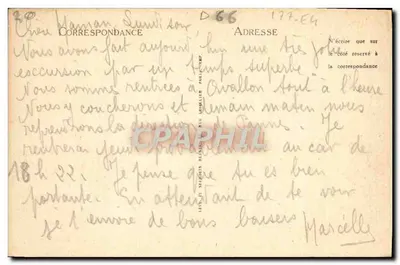 20
D 66
177-E4
Chère Maman, Lundi soir,
CORRESPONDANCE
ADRESSE
N'écrire que sur
le côté réservé à
la correspondance
Nous avons fait aujourd'hui une très jolie
excursion par un temps superbe
Nous sommes rentrées à Avallon tout à l'heure
Nous y coucherons et demain matin nous
reprendrons la direction de Je
rentrerai jeudi au car de
18h22. Je pense que tu es bien
portante. En attendant de te voir
je t'envoie de bons baisers Marcelle
CPARHIL